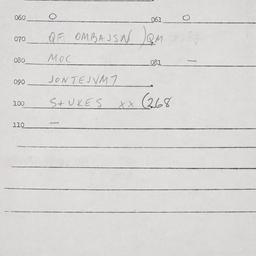 060 O 061 O
070 QF OMBAJSN ) QM
080 MOC 081 —
090 JONTEJVM7
100 S+UKES xx (268
110 —